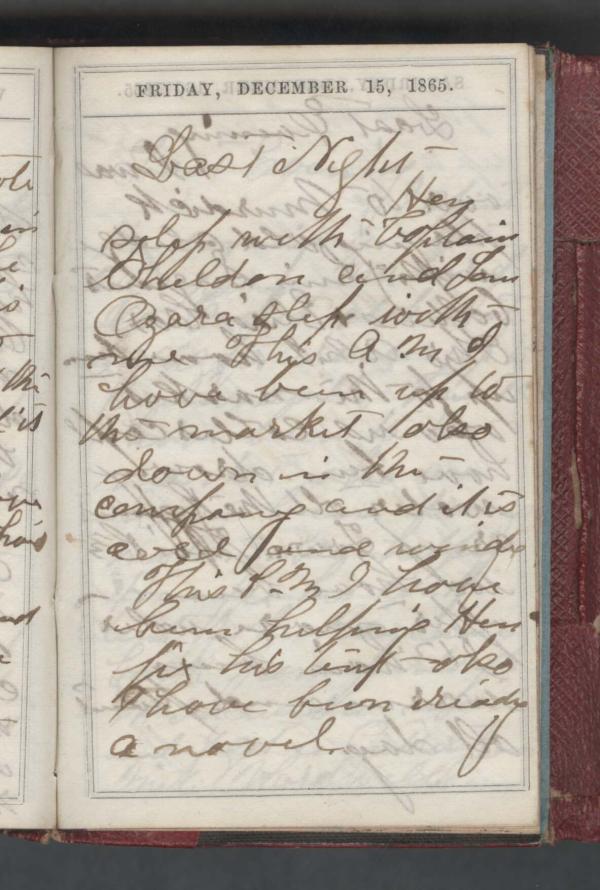 FRIDAY, DECEMBER 15, 1865.
Last Night
Hen
slep with Captain
Sheldon and Sam
slep with
me This A M I
have been up to
the market also
down in the
company and it is
cold and windy
This P. M I have
been helping Hen
fix his tent also
I have been readg
a novel.